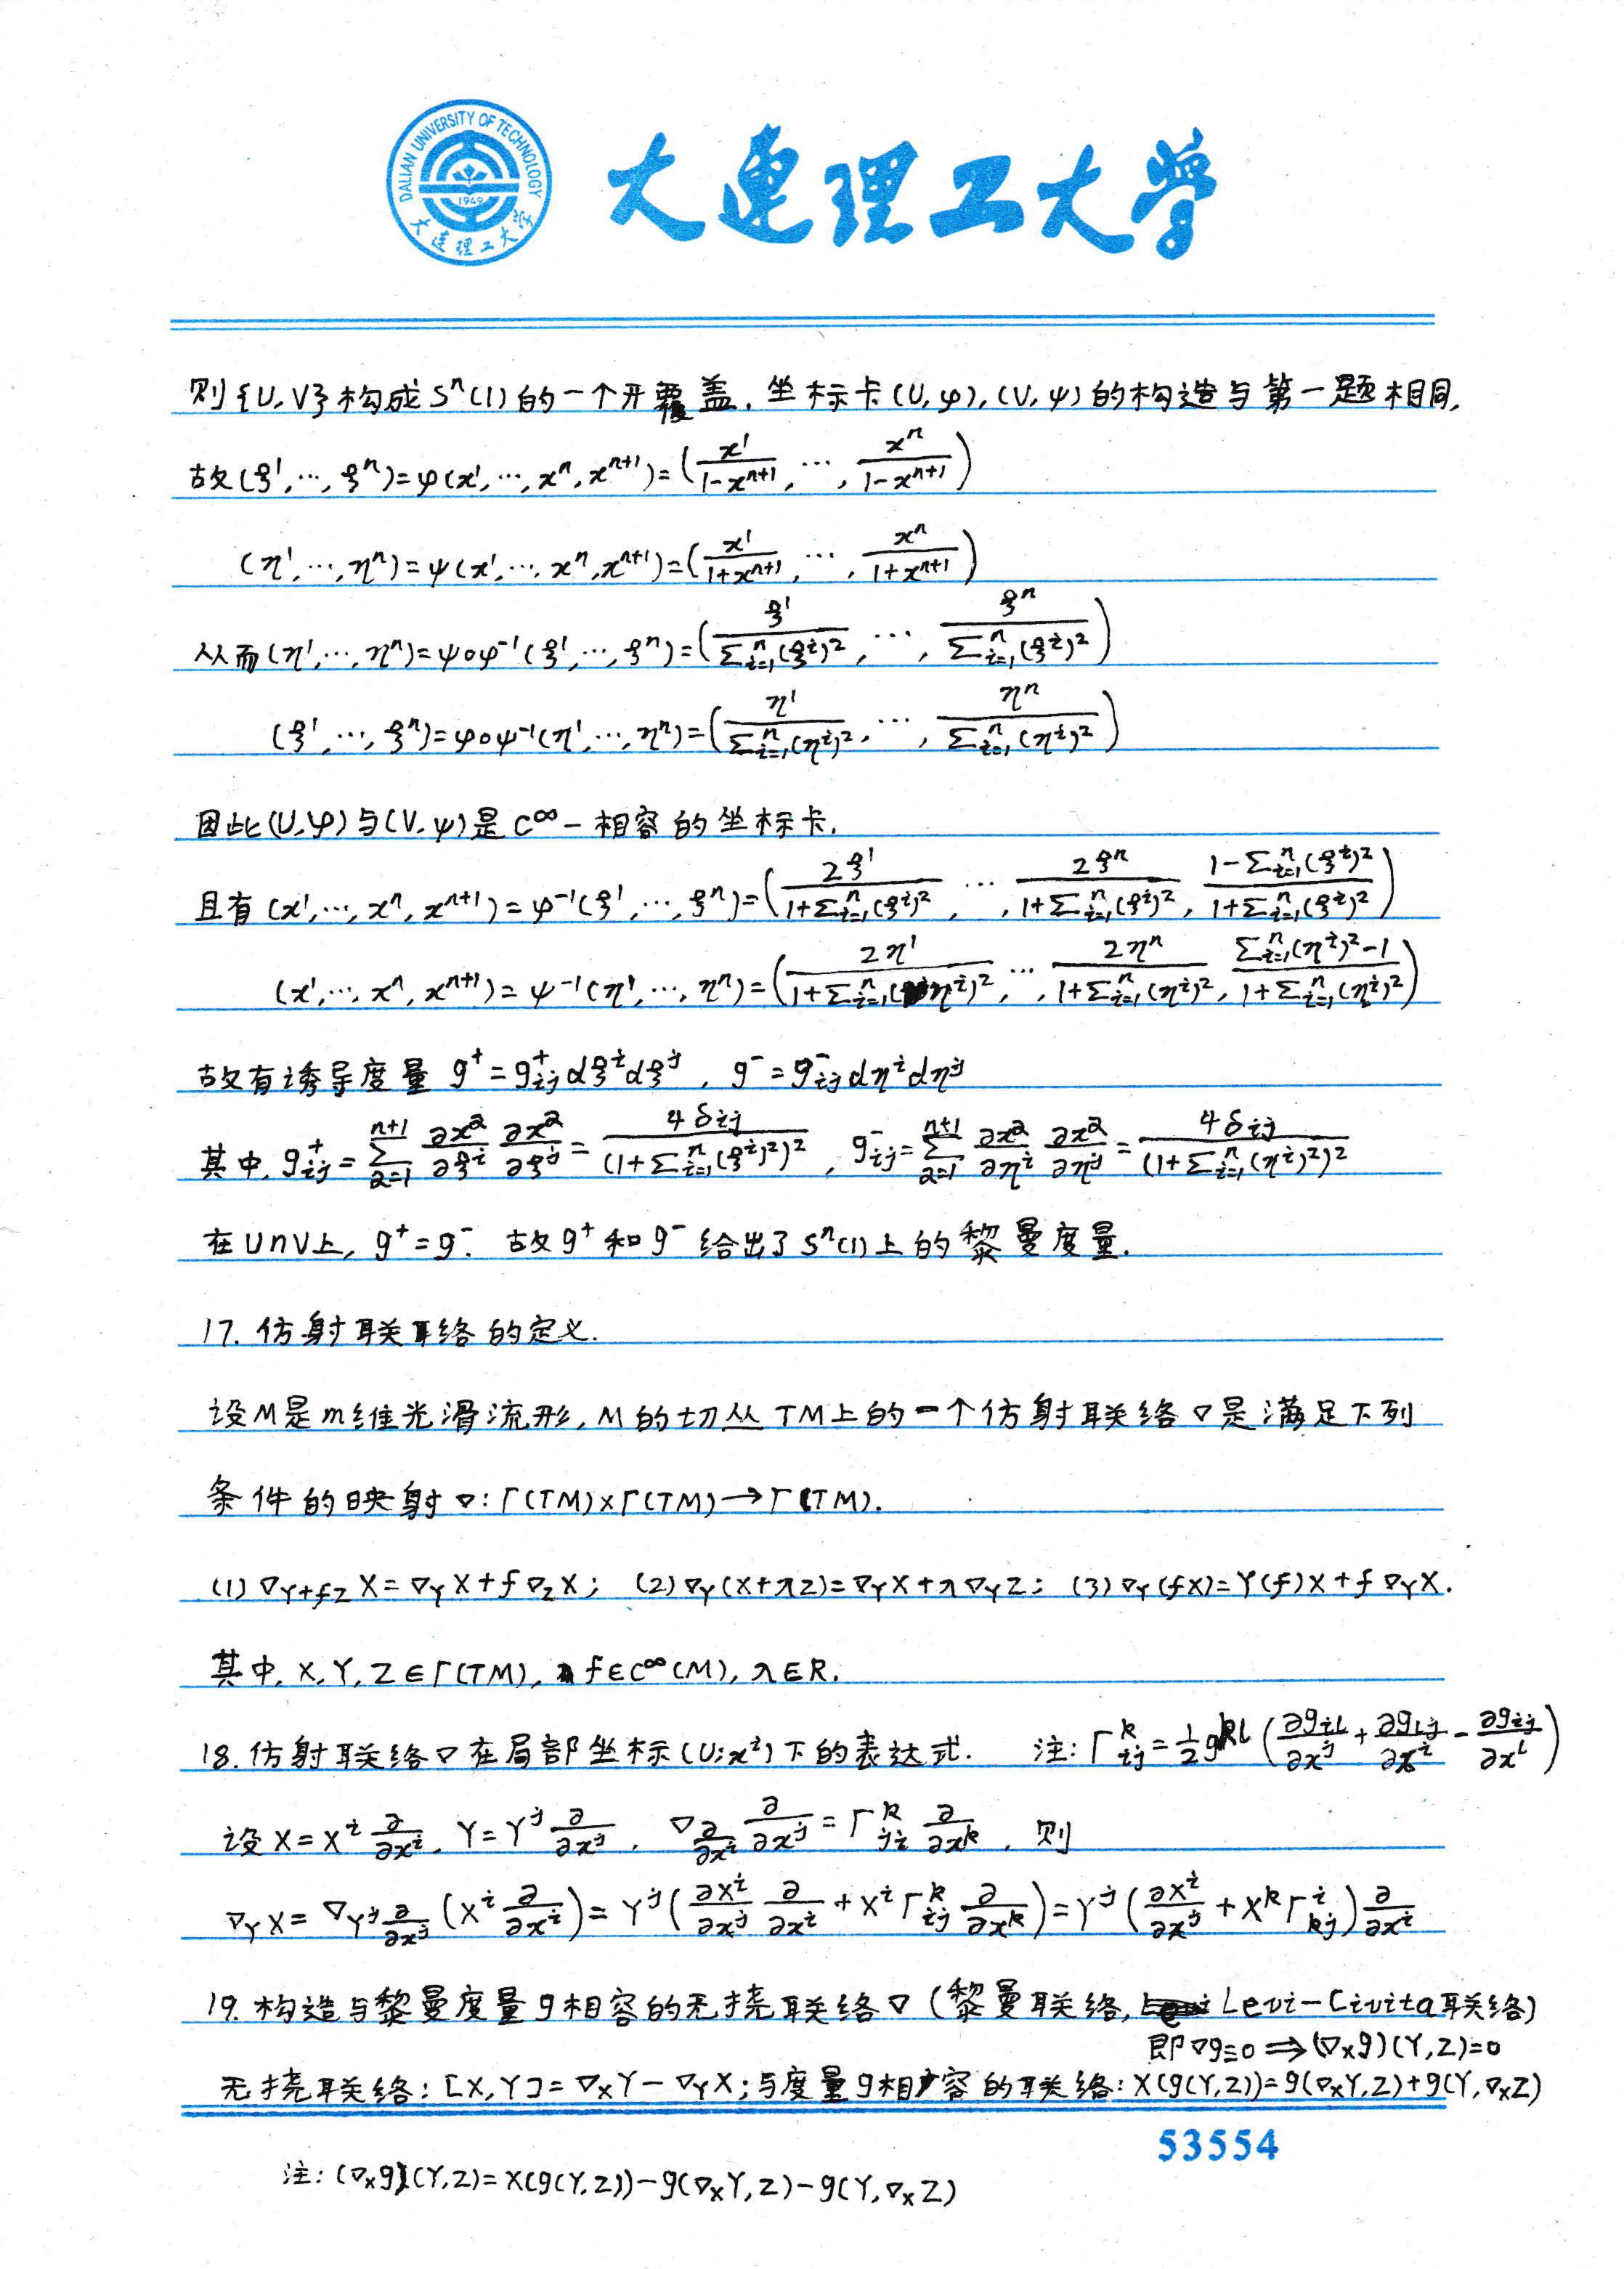 DALIAN UNIVERSITY OF TECHNOLOGY
1949
大连理工大学
大连理工大学
则{U, V}构成Sⁿ(1)的一个开覆盖. 坐标卡(U, φ), (V, ψ)的构造与第一题相同,
故(ξ¹, ⋯, ξⁿ)=φ(x¹, ⋯, xⁿ, xⁿ⁺¹)=(x¹/(1-xⁿ⁺¹), ⋯, xⁿ/(1-xⁿ⁺¹))
(η¹, ⋯, ηⁿ)=ψ(x¹, ⋯, xⁿ, xⁿ⁺¹)=(x¹/(1+xⁿ⁺¹), ⋯, xⁿ/(1+xⁿ⁺¹))
从而(η¹, ⋯, ηⁿ)=ψ∘φ⁻¹(ξ¹, ⋯, ξⁿ)=(ξ¹/∑ⁿᵢ₌₁(ξⁱ)², ⋯, ξⁿ/∑ⁿᵢ₌₁(ξⁱ)²)
(ξ¹, ⋯, ξⁿ)=φ∘ψ⁻¹(η¹, ⋯, ηⁿ)=(η¹/∑ⁿᵢ₌₁(ηⁱ)², ⋯, ηⁿ/∑ⁿᵢ₌₁(ηⁱ)²)
因此(U, φ)与(V, ψ)是C^∞-相容的坐标卡.
且有(x¹, ⋯, xⁿ, xⁿ⁺¹)=φ⁻¹(ξ¹, ⋯, ξⁿ)=(2ξ¹/(1+∑ⁿᵢ₌₁(ξⁱ)²), ⋯, 2ξⁿ/(1+∑ⁿᵢ₌₁(ξⁱ)²), (1-∑ⁿᵢ₌₁(ξⁱ)²)/(1+∑ⁿᵢ₌₁(ξⁱ)²))
(x¹, ⋯, xⁿ, xⁿ⁺¹)=ψ⁻¹(η¹, ⋯, ηⁿ)=(2η¹/(1+∑ⁿᵢ₌₁(ηⁱ)²), ⋯, 2ηⁿ/(1+∑ⁿᵢ₌₁(ηⁱ)²), (∑ⁿᵢ₌₁(ηⁱ)²-1)/(1+∑ⁿᵢ₌₁(ηⁱ)²))
故有诱导度量 g⁺=g⁺ᵢⱼdξⁱdξʲ, g⁻=g⁻ᵢⱼdηⁱdηʲ
其中, g⁺ᵢⱼ=∑_{α=1}^{n+1} ∂x^α/∂ξⁱ ∂x^α/∂ξʲ=4δᵢⱼ/(1+∑ⁿᵢ₌₁(ξⁱ)²)², g⁻ᵢⱼ=∑_{α=1}^{n+1} ∂x^α/∂ηⁱ ∂x^α/∂ηʲ=4δᵢⱼ/(1+∑ⁿᵢ₌₁(ηⁱ)²)²
在U∩V上, g⁺=g⁻. 故g⁺和g⁻给出了Sⁿ(1)上的黎曼度量.
17. 仿射联络的定义.
设M是m维光滑流形, M的切丛TM上的一个仿射联络∇是满足下列
条件的映射∇: Γ(TM)×Γ(TM)→Γ(TM).
(1) ∇_{Y+fZ}X=∇_Y X+f∇_Z X; (2) ∇_Y(X+λZ)=∇_Y X+λ∇_Y Z; (3) ∇_Y(fX)=Y(f)X+f∇_Y X.
其中, X, Y, Z∈Γ(TM), f∈C^∞(M), λ∈R.
18. 仿射联络∇在局部坐标(U; xⁱ)下的表达式. 注: Γ^k_{ij}=1/2 g^{kl}(∂g_{il}/∂xʲ+∂g_{lj}/∂xⁱ-∂g_{ij}/∂x^l)
设X=Xⁱ ∂/∂xⁱ, Y=Yʲ ∂/∂xʲ, ∇_{∂/∂xⁱ} ∂/∂xʲ=Γ^k_{ji} ∂/∂x^k, 则
∇_Y X=∇_{Yʲ ∂/∂xʲ}(Xⁱ ∂/∂xⁱ)=Yʲ(∂Xⁱ/∂xʲ ∂/∂xⁱ+XⁱΓ^k_{ij} ∂/∂x^k)=Yʲ(∂Xⁱ/∂xʲ+X^kΓ^i_{kj}) ∂/∂xⁱ
19. 构造与黎曼度量g相容的无挠联络∇(黎曼联络, Levi-Civita联络)
即∇g≡0⇒(∇_X g)(Y, Z)=0
无挠联络: [X, Y]=∇_X Y-∇_Y X; 与度量g相容的联络: X(g(Y, Z))=g(∇_X Y, Z)+g(Y, ∇_X Z)
53554
注: (∇_X g)(Y, Z)=X(g(Y, Z))-g(∇_X Y, Z)-g(Y, ∇_X Z)